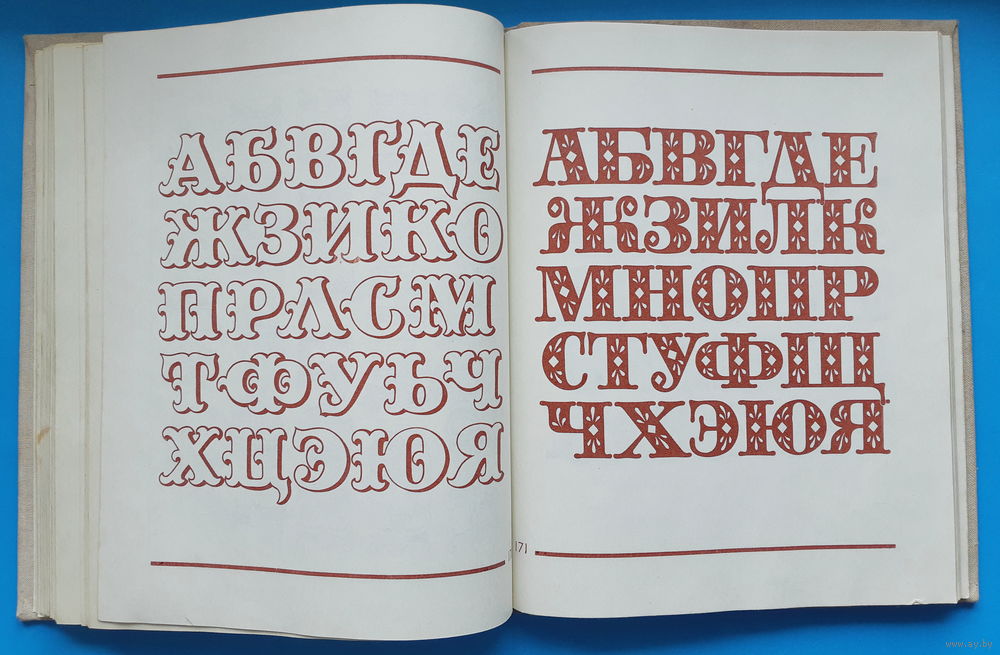 АБВГДЕ
ЖЗИКО
ПРЛСМ
ТФУЬЧ
ХЦЭЮЯ
АБВГДЕ
ЖЗИЛК
МНОПР
СТУФЩ
ЧХЭЮЯ
171
www.ay.by